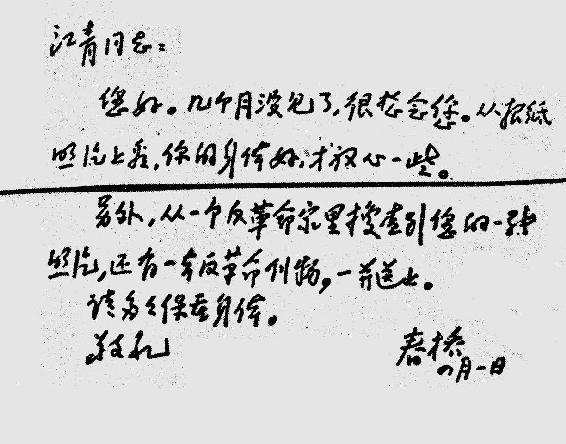 江青同志：
您好。几个月没见了，很想念您。从报纸
照片上看，您的身体好，才放心一些。
另外，从一个反革命家里搜查到您的一张
照片，还有一套反革命刊物，一并送上。
请多多保重身体。
敬礼
春桥
四月一日